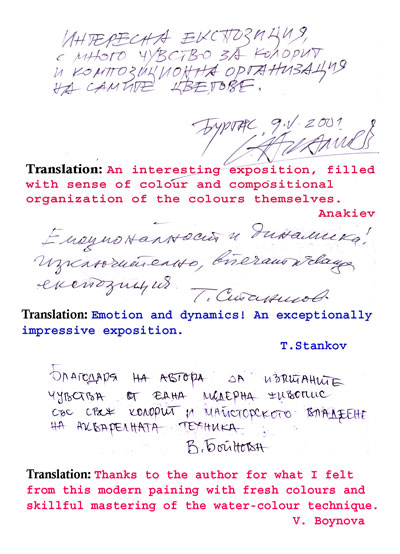 ИНТЕРЕСНА ЕКСПОЗИЦИЯ,
С МНОГО ЧУВСТВО ЗА КОЛОРИТ
И КОМПОЗИЦИОННА ОРГАНИЗАЦИЯ
НА САМИТЕ ЦВЕТОВЕ.
БУРГАС. 9.V.2001
Translation: An interesting exposition, filled
with sense of colour and compositional
organization of the colours themselves.
Anakiev
Емоционалност и динамика!
Изключително, впечатляваща
експозиция
Т. Станков
Translation: Emotion and dynamics! An exceptionally
impressive exposition.
T.Stankov
БЛАГОДАРЯ НА АВТОРА ЗА
ЧУВСТВА ОТ ЕДНА МОДЕРНА ЖИВОПИС
СЪС СВЕЖ КОЛОРИТ И МАЙСТОРСКОТО ВЛАДЕЕНЕ
НА АКВАРЕЛНАТА ТЕХНИКА
В. БОЙНОВА
Translation: Thanks to the author for what I felt
from this modern paining with fresh colours and
skillful mastering of the water-colour technique.
V. Boynova